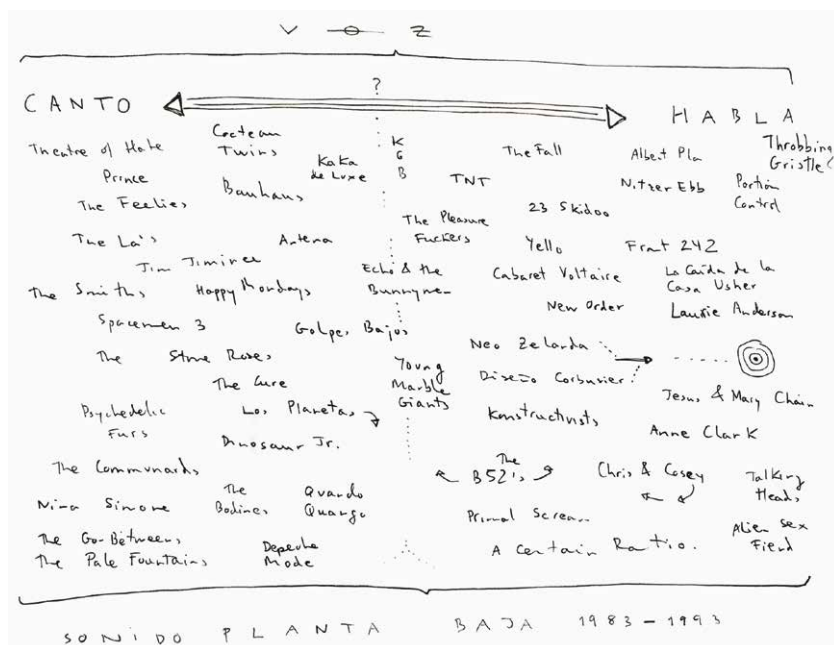 VOZ
?
CANTO
HABLA
Theatre of Hate
Cocteau
Twins
KaKa
de Luxe
K
G
B
The Fall
Albert Pla
Throbbing
Gristle
Prince
Bauhaus
TNT
Nitzer Ebb
Portion
Control
The Feelies
The Pleasure
Fuckers
23 Skidoo
The La's
Antena
Yello
Front 242
Jim Jiminee
Echo & the
Bunnymen
Cabaret Voltaire
La Caída de la
Casa Usher
The Smiths
Happy Mondays
New Order
Laurie Anderson
Spacemen 3
Golpes Bajos
Neo Zelanda
The Stone Roses
Young
Marble
Giants
Diseño Corbusier
The Cure
Jesus & Mary Chain
Psychedelic
Furs
Los Planetas
Konstructivists
Anne Clark
Dinosaur Jr.
The Communards
The
B52's
Chris & Cosey
Talking
Heads
Nina Simone
The
Bodines
Quando
Quango
Primal Scream
The Go-Betweens
The Pale Fountains
Depeche
Mode
A Certain Ratio.
Alien Sex
Fiend
SONIDO PLANTA BAJA 1983-1993